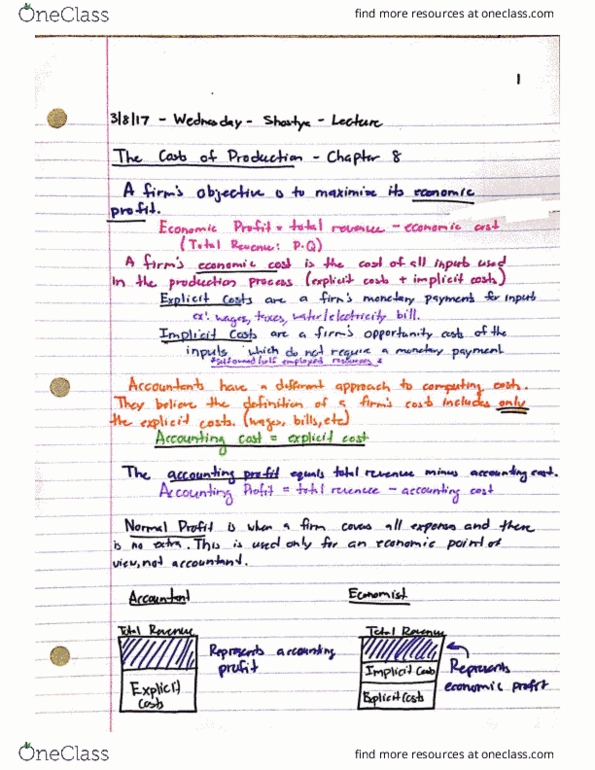 OneClass
find more resources at oneclass.com
1
3/8/17 - Wednesday - Shostya - Lecture
The Costs of Production - Chapter 8
A firm's objective is to maximize its economic
profit.
Economic Profit = total revenue - economic cost
(Total Revenue: P.Q)
A firm's economic cost is the cost of all inputs used
in the production process (explicit costs + implicit costs)
Explicit Costs are a firm's monetary payments for inputs
ex: wages, taxes, water/electricity bill.
Implicit Costs are a firm's opportunity costs of the
inputs which do not require a monetary payment
*self owned/self employed resources*
Accountants have a different approach to computing costs.
They believe the definition of a firm's costs includes only
the explicit costs. (wages, bills, etc)
Accounting cost = explicit cost
The accounting profit equals total revenue minus accounting cost.
Accounting Profit = total revenue - accounting cost
Normal Profit is when a firm covers all expenses and there
is no extra. This is used only for an economic point of
view, not accountant.
Accountant
Economist
Total Revenue
Total Revenue
Represents accounting
profit
Explicit
Costs
Implicit Costs
Explicit Costs
Represents
economic profit
OneClass
find more resources at oneclass.com